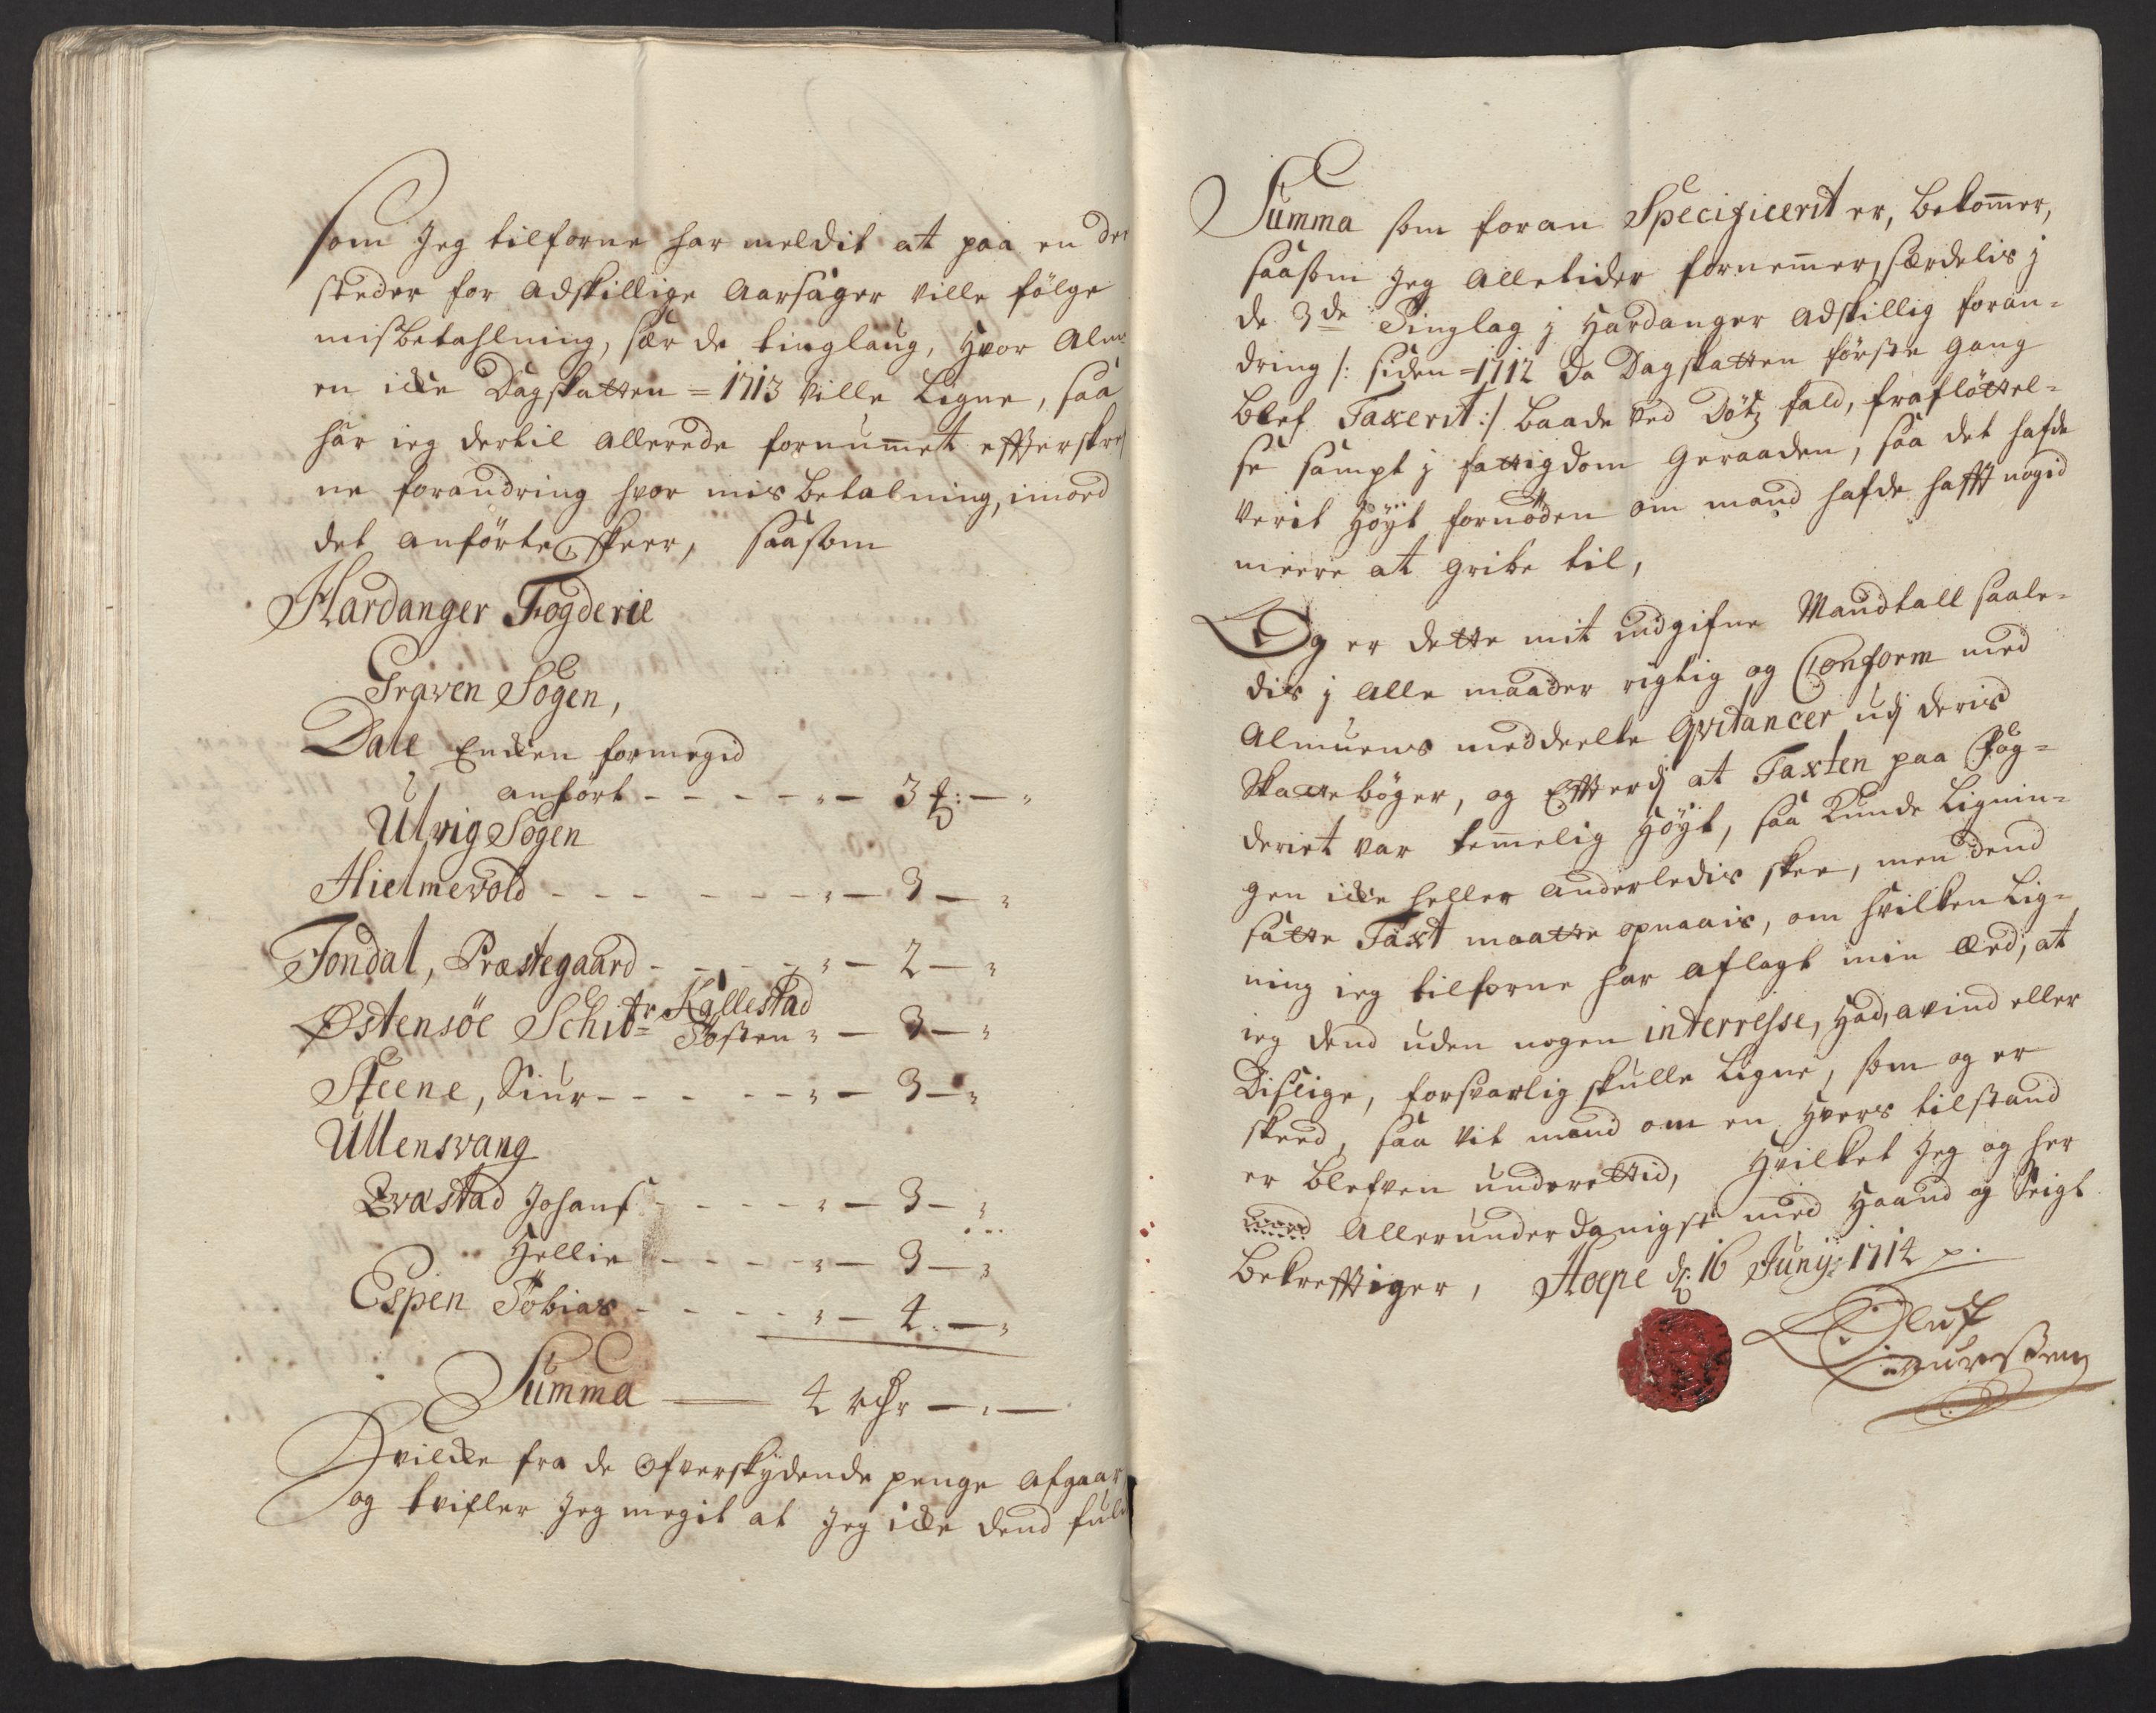 Som Jeg tilforne har meldit at paa en der
steder for adskillige Aarsager ville fölge
misbetahlning, sær de tinglaug, hvor Alm
en icke Dagskatten = 1713 ville Ligne, saa
har ieg dertil allerede fornummet effterskref
ne forandring hvor mis betalning, imod
det anförte, skeer, saasom
Hardanger Fogderie
Graven Sogen,
Dale Encken formegid
anfört - - - - - „ — 3 ₰: — „
Ulvig Sogen
Hielmevold - - - - - - - „ — 3 — „
Jondal, Præstegaard - - - - - „ — 2 — „
Østensöe Schibr Kallestad
Tosten „ — 3 — „
Steene, Siur - - - - - „ — 3 — „
Ullensvang
Qvæstad Johans - - - - „ — 3 — „
Hellie - - - - - „ — 3 — „
Espen Tobias - - - - - „ — 4 — „
Summa —— 4 rdr — „ —
Hvilcke fra de ofverskydende penge afgaar
og tvifler Jeg megit at Jeg icke dend fuld
Summa som foran Specificerit er, bekommer,
saasom Jeg alletider fornemmer, særdelis j
de 3de Tinglag j Hardanger adskillig foran-
dring /: siden = 1712 da Dagskatten förste gang
blef Taxerit :/ baade ved döds fald, fraflöttel-
se sampt j fattigdom geraaden, saa det hafde
verit höyt fornöden om mand hafde hafft nogid
meere at gribe til,
Og er dette mit udgifne Mandtall saale-
dis j alle maader rigtig og Conform med
Almuens meddeelte Qvitancer udj deris
Skattebøger, og Effterdj at Taxten paa Fog-
deriet var temmelig höyt, saa kunde Lignin-
gen icke heller anderledis skee, men dend
satte Taxt maatte opnaais, om hvilken Lig-
ning ieg tilforne har aflagt min Æed, at
ieg dend uden nogen interresse, had, avind eller
Dislige, forsvarlig skulle Ligne, som og er
skeed, saa vit mand om en hvers tilstand
er blefven underettid, Hvilket Jeg og her
med allerunderdanigst med Haand og Seigl
bekreffter, Hoepe d: 16 Junij 1714 p.
Oluf
Lauressen